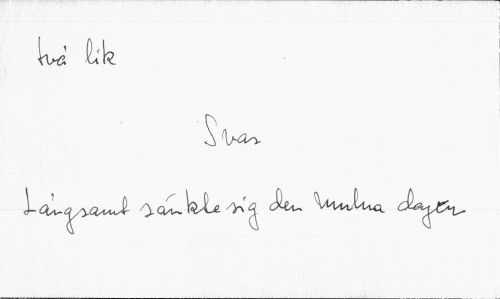 två lik
Svar
Långsamt sänkte sig den mulna dagen